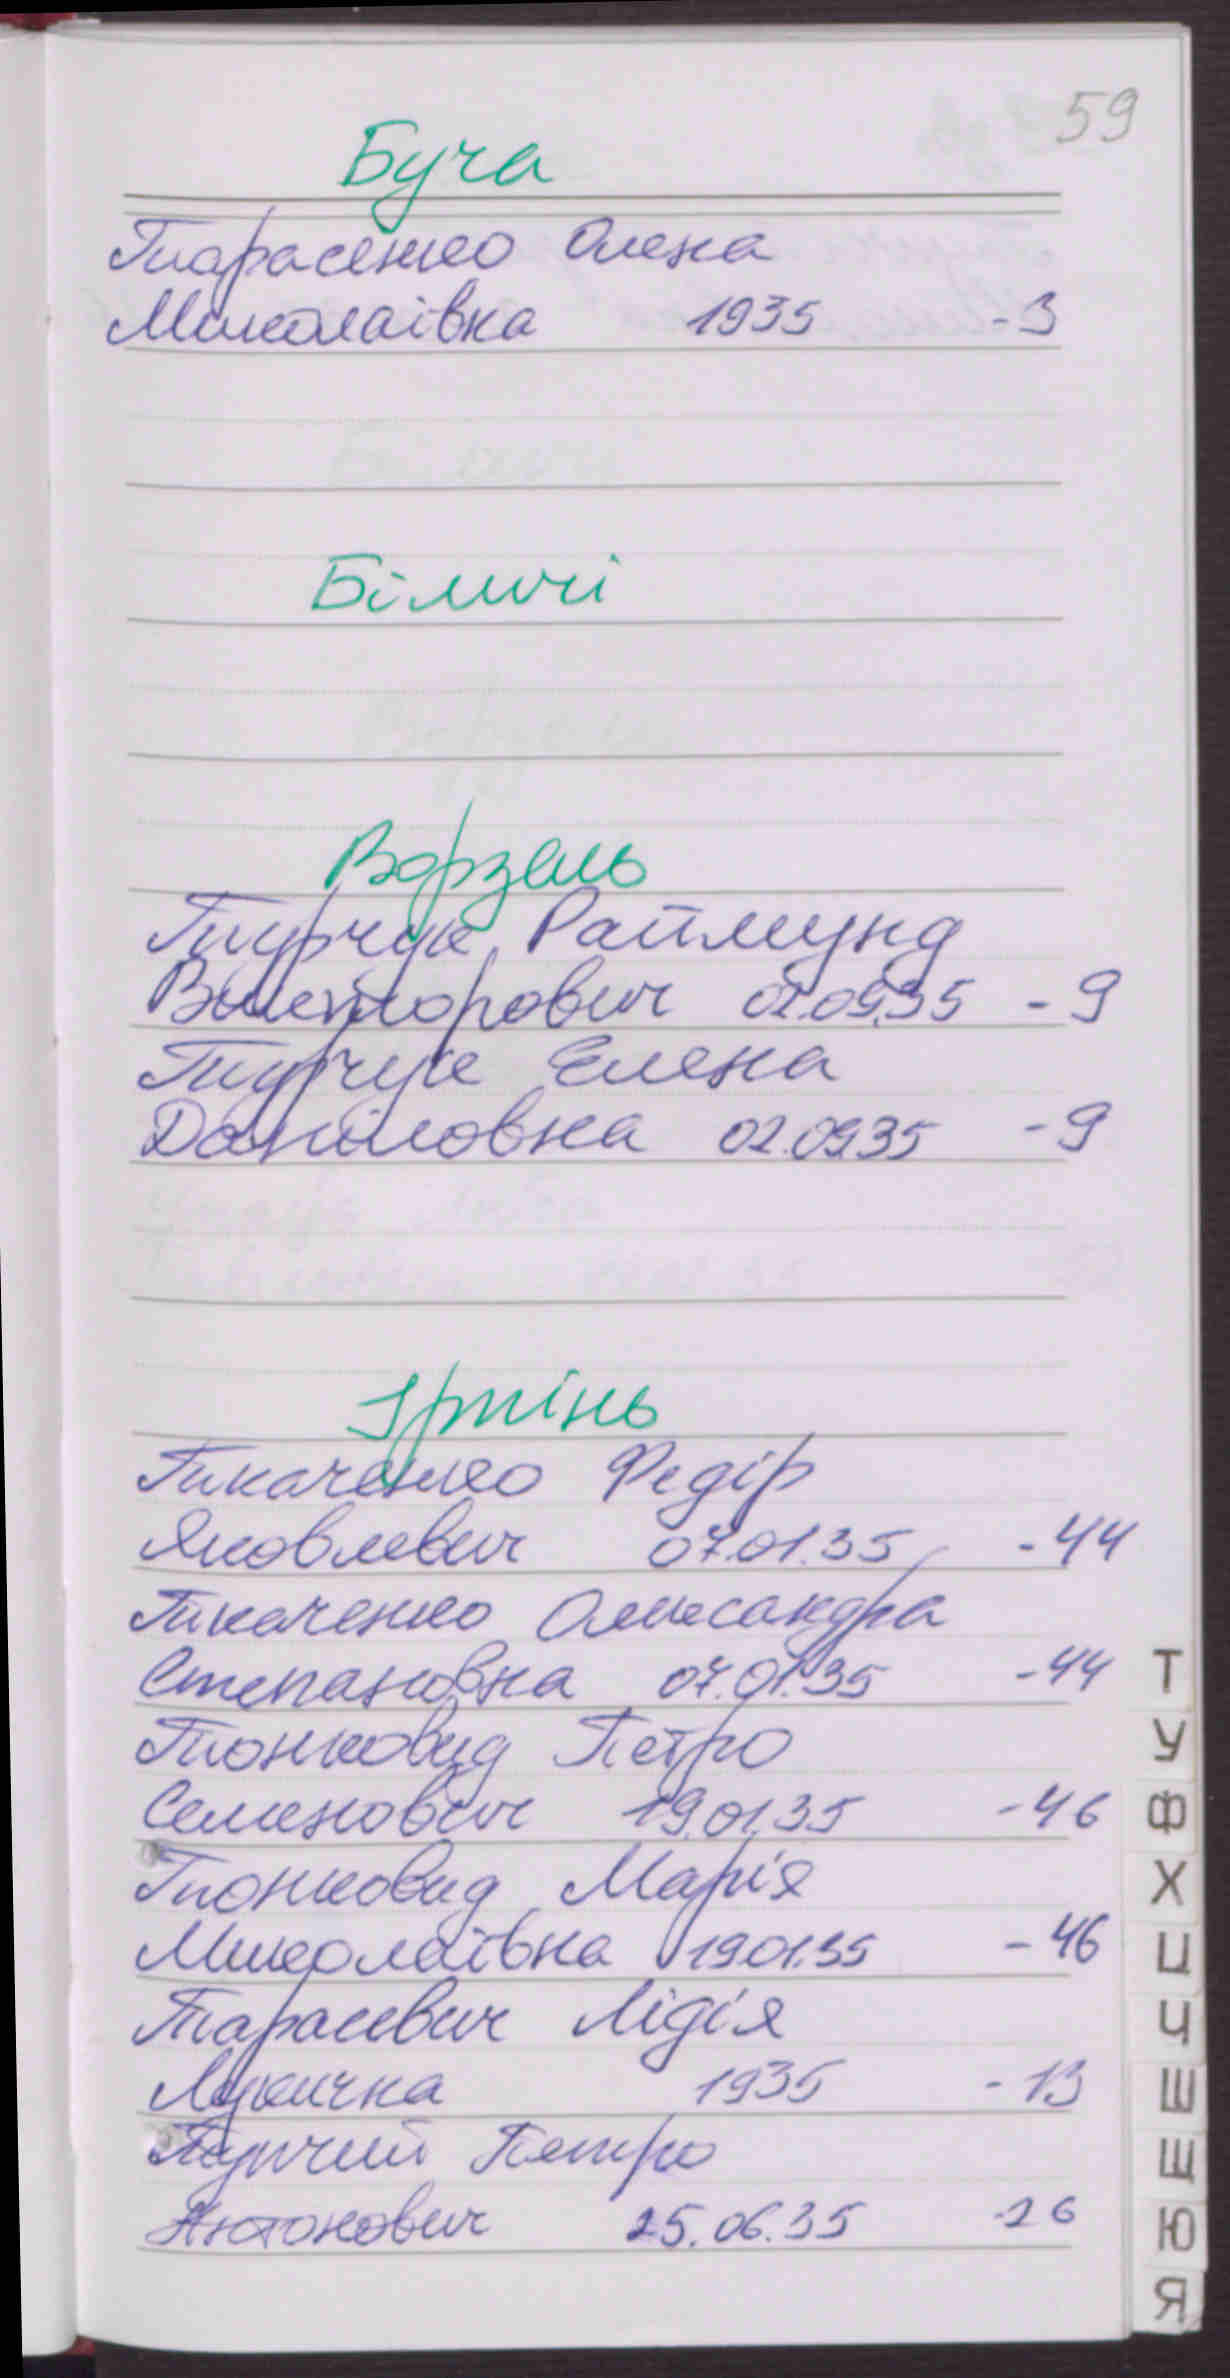 59
Буча
Тарасенко Олена
Миколаївна 1935 - 3
Біличі
Ворзель
Турчук Раймунд
Вікторович 02.09.35 - 9
Турчук Елена
Даніловна 02.09.35 - 9
Ірпінь
Ткаченко Федір
Яковлевич 07.01.35 - 44
Ткаченко Олександра
Степановна 07.01.35 - 44
Тонковид Петро
Семенович 19.01.35 - 46
Тонковид Марія
Миколаївна 19.01.35 - 46
Тарасевич Лідія
Лукична 1935 - 13
Петро
Антонович 25.06.35 - 26
Т
У
Ф
Х
Ц
Ч
Ш
Щ
Ю
Я